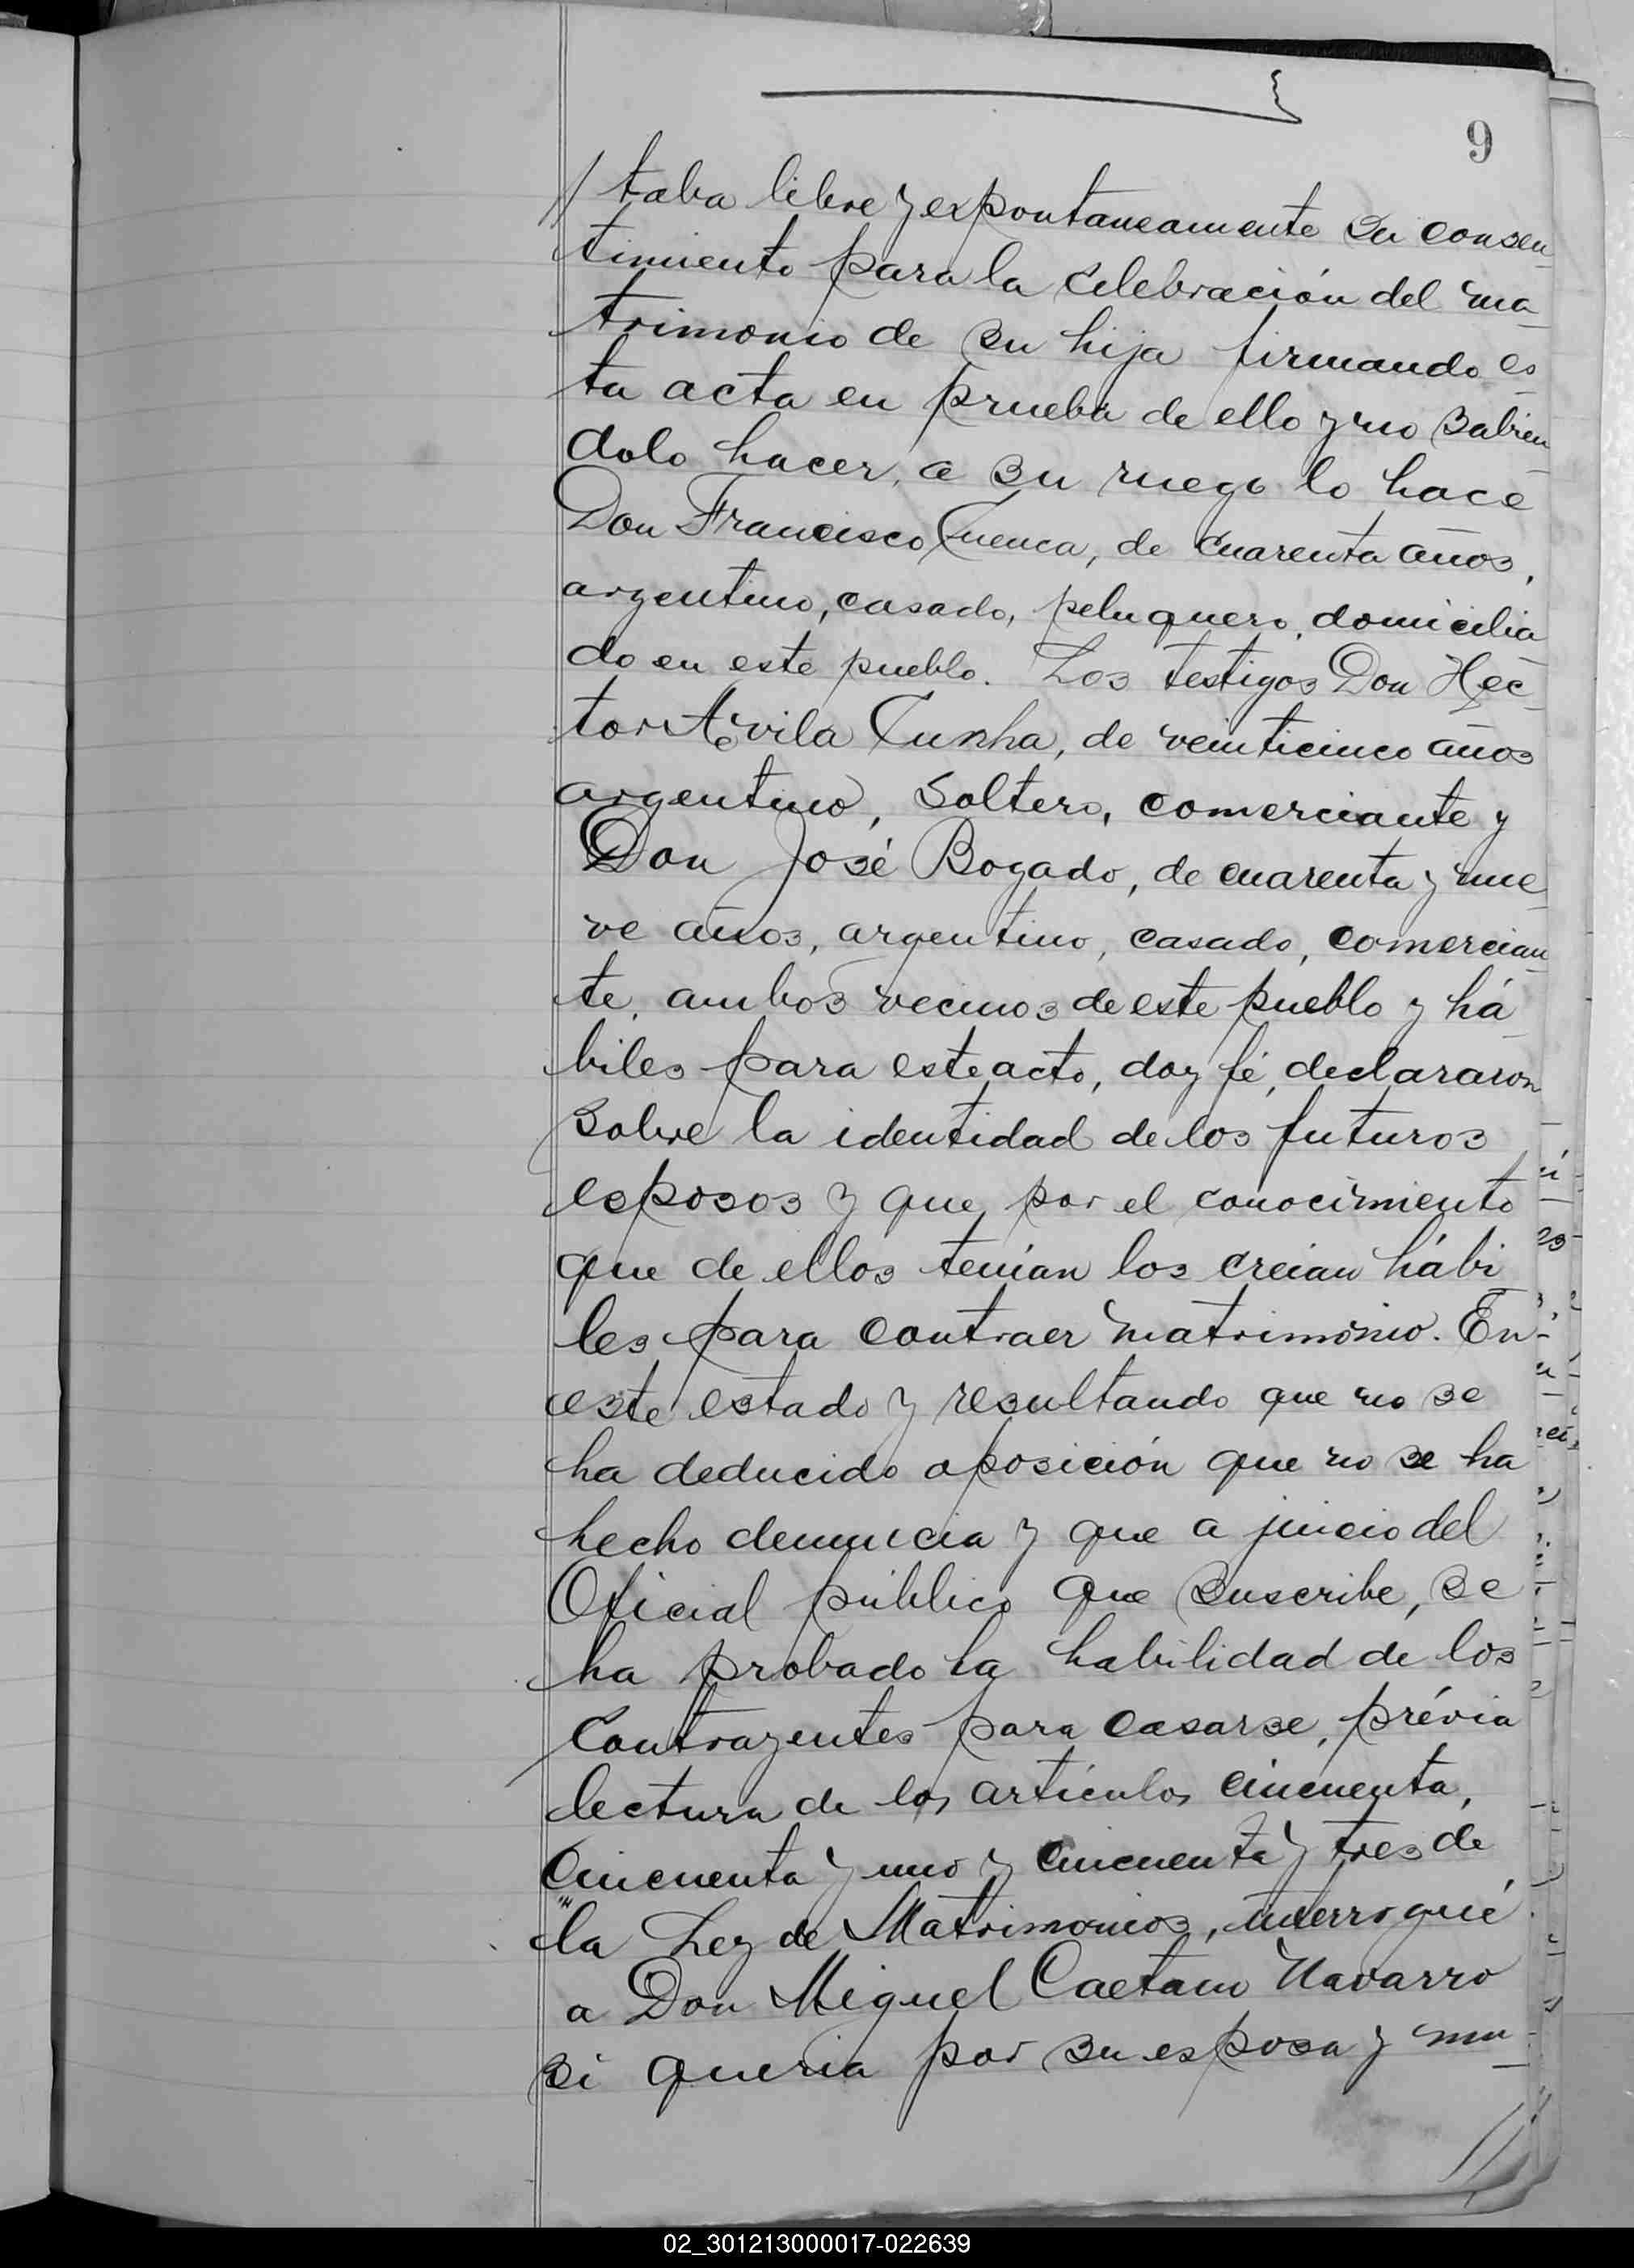 9
// taba libre y expontaneamente su consen
timiento para la celebración del ma
trimonio de su hija firmando es
ta acta en prueba de ello y no sabien
dolo hacer, a su ruego lo hace
Don Francisco Cuenca, de cuarenta años,
argentino, casado, peluquero, domicilia
do en este pueblo. Los testigos Don Héc
tor Avila Cunha, de veinticinco años
argentino, soltero, comerciante y
Don José Bogado, de cuarenta y nue
ve años, argentino, casado, comercian
te, ambos vecinos de este pueblo y há
biles para este acto, doy fé, declararon
sobre la identidad de los futuros
esposos y que, por el conocimiento
que de ellos tenían los creían hábi
les para contraer matrimonio. En
este estado y resultando que no se
ha deducido oposición que no se ha
hecho denuncia y que a juicio del
Oficial público que suscribe, se
ha probado la habilidad de los
contrayentes para casarse, prévia
lectura de los artículos cincuenta,
cincuenta y uno y cincuenta y tres de
la Ley de Matrimonios, interrogué
a Don Miguel Caetano Navarro
si quería por su esposa y mu
//
02_301213000017-022639